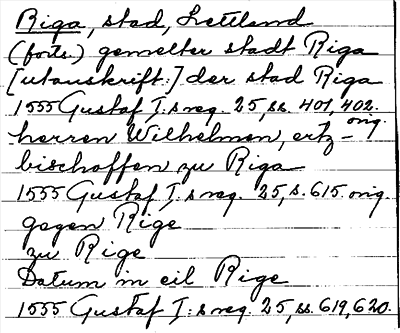 Riga, stad, Lettland
(forts.) gemelter stadt Riga
[utanskrift:] der stad Riga
1555 Gustaf I:s reg. 25, ss. 401, 402. orig.
herren Wilhelmen, ertz-
bischoffen zu Riga
1555 Gustaf I:s reg. 25, s. 615 orig.
gegen Rige
zu Rige
Datum in eil Rige
1555 Gustaf I:s reg. 25, ss. 619, 620.